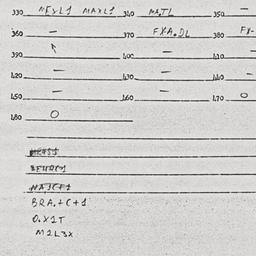 330 NEXL1 MAXL1 340 MA,TL 350 —
360 — 370 FXA.DL 380 FX-
390 400 — 410 —
420 — 430 — 440 —
450 — 460 — 470 O
480 O
BRA.+C+1
0.X1T
M1L3X